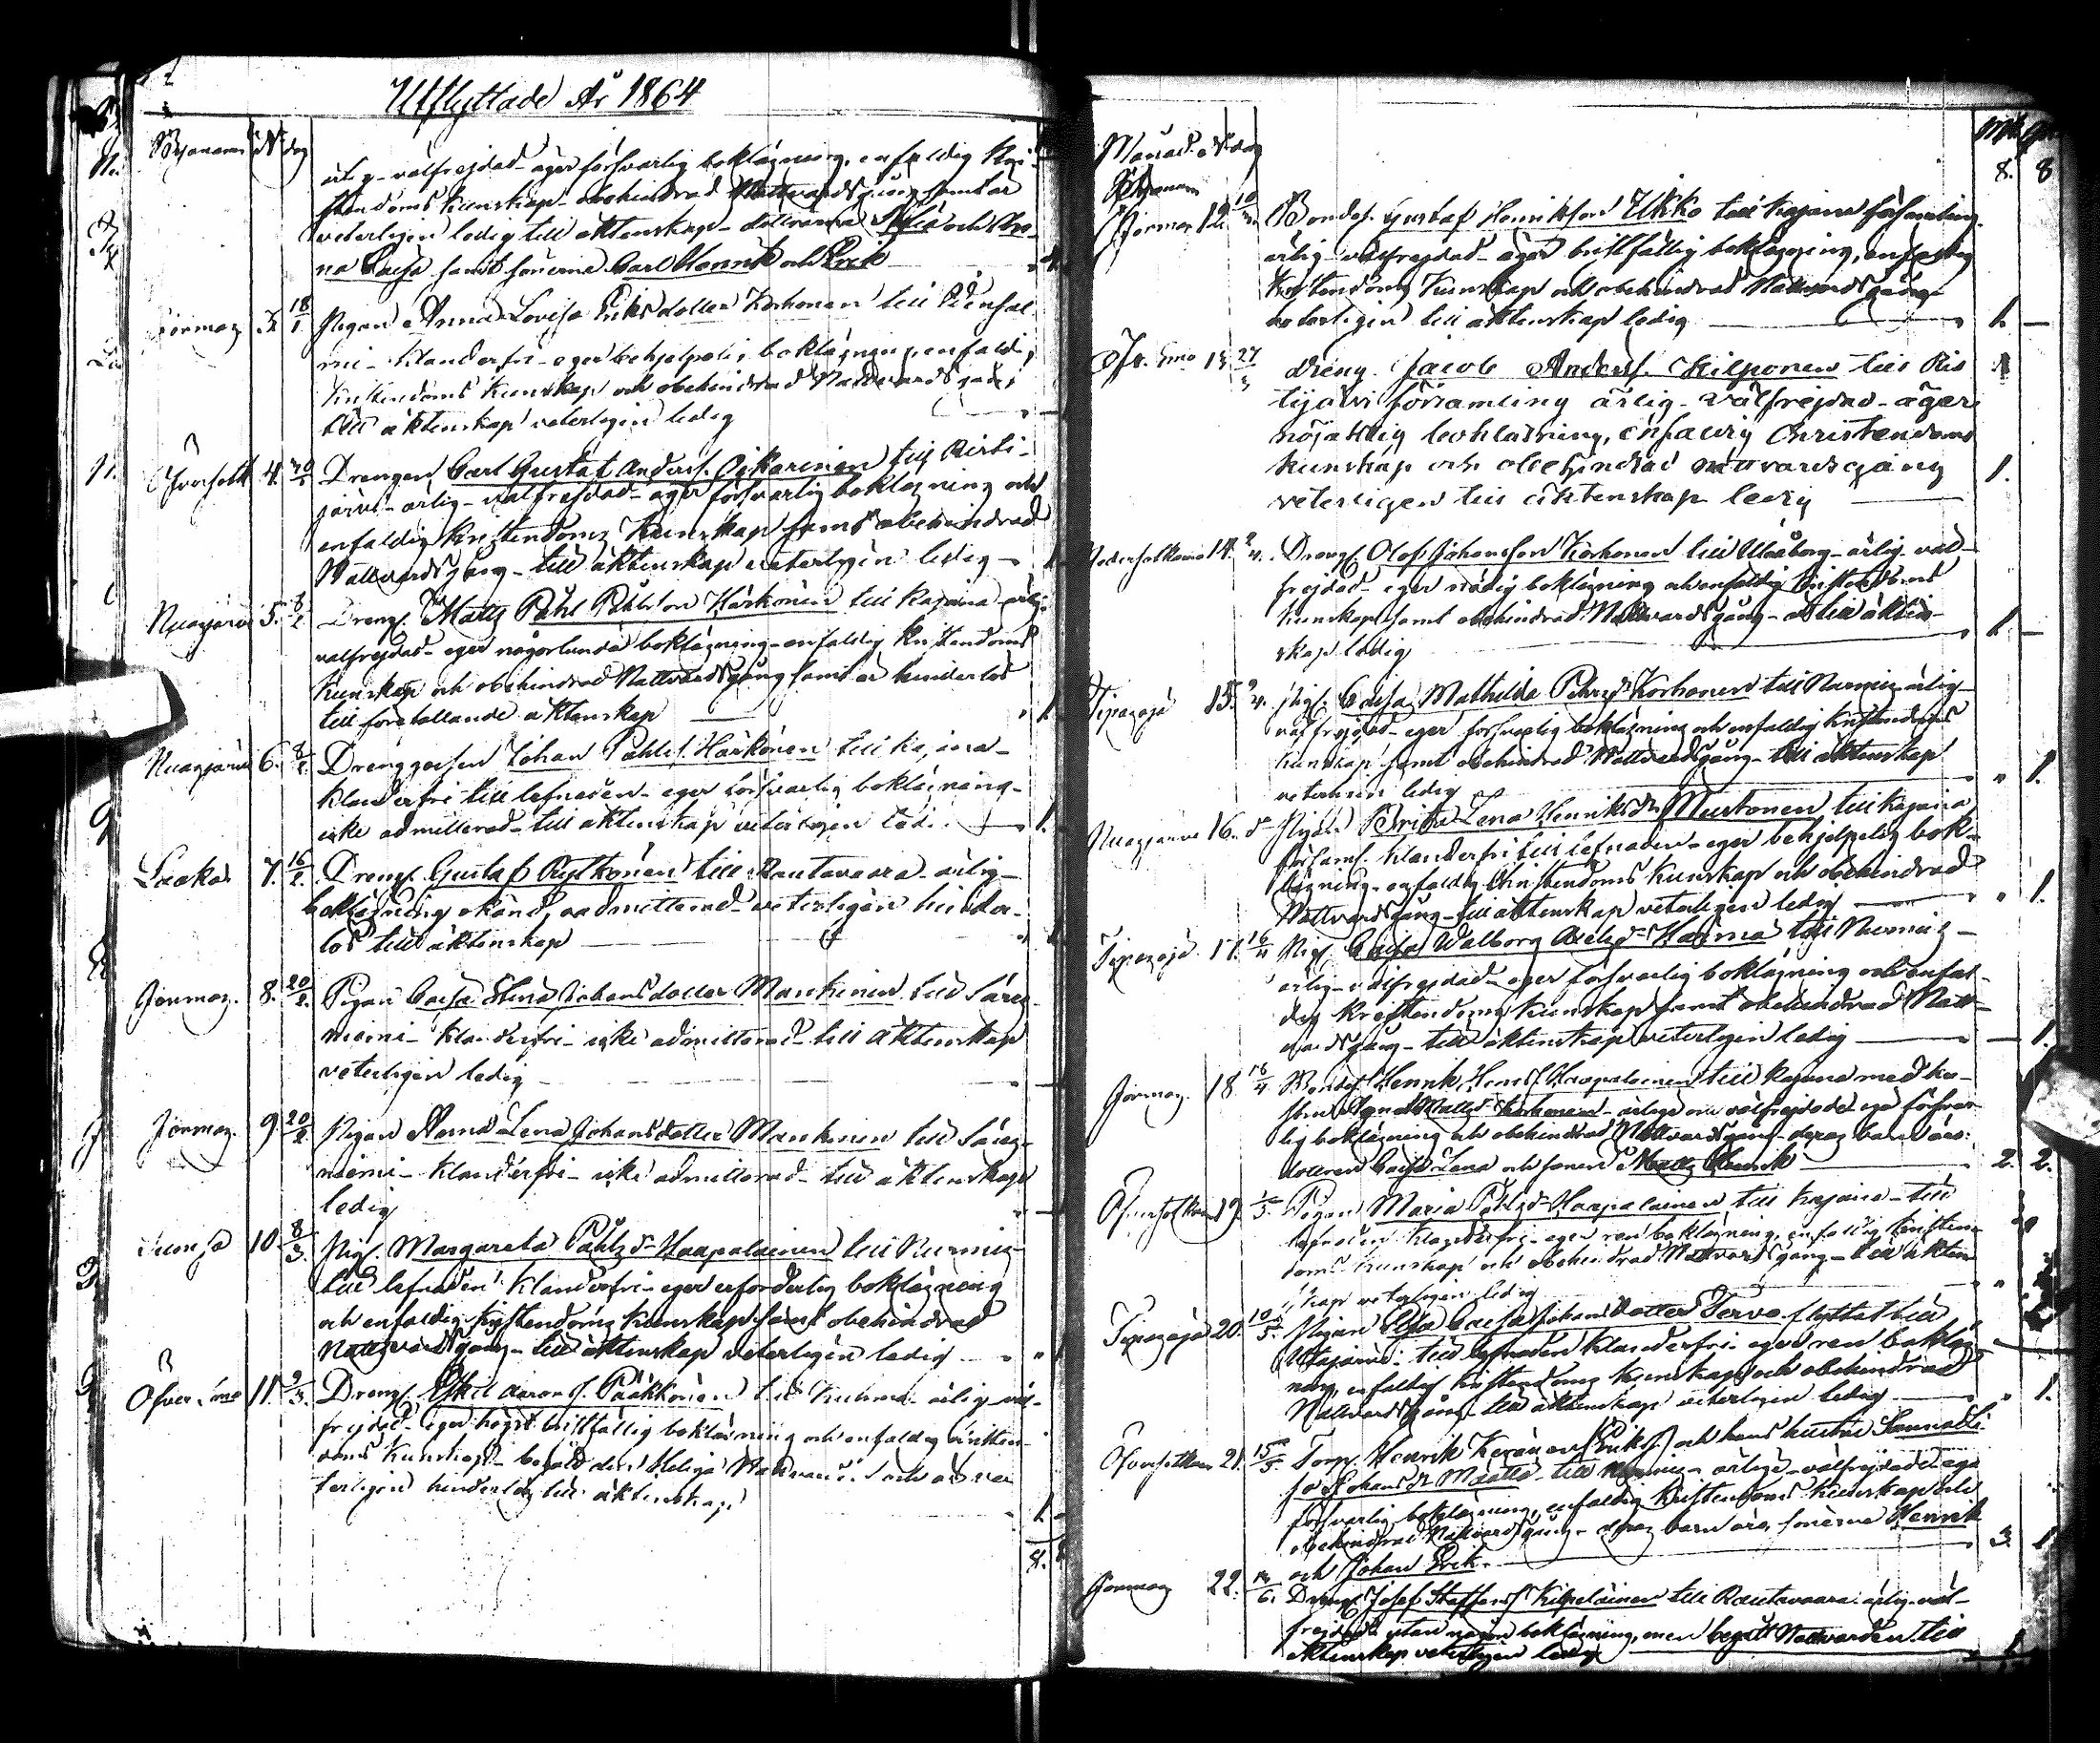 Utflyttade År 1864
Byanamn N: dag
ärlig - välfrejdad - äger försvarlig bokläsning, enfaldig Kri-
stendoms kunskap - obehindrad Nattvardsgång samt är
veterligen ledig till äktenskap - döttrarna och An-
na Caisa samt sönerne Carl Henrik och Erik
Jormaz 3. 18/1. Pigan Anna Lovisa Eriksdotter Korhonen till Idensal-
mi - klanderfri - eger behjelpelig bokläsning, enfaldig
Kristendoms kunskap och obehindrad Nattvardsgång
till äktenskap veterligen ledig
4. Drengen Carl Gustaf Anders. Oikarinen till Risti-
järvi - ärlig - välfrejdad - äger försvarlig bokläsning och
enfaldig Kristendoms Kunskap samt obehindrad
Nattvardsgång - till äktenskap veterligen ledig - 1.
Nuasjärvi 5. 8/2. Dreng. Matts Påhl Påhlsson Härkönen till Kajana ärlig
välfrejdad - eger någorlunda bokläsning - enfaldig Kristendoms
kunskap och obehindrad Nattvardsgång samt är hinderlös
till förehållande äktenskap 1.
Nuasjärvi 6. 8/2. Drenggossen Johan Påhls. Härkönen till Kajana -
klanderfri till lefnaden - eger försvarlig bokläsning -
icke admitterad - till äktenskap veterligen led. 1.
Laaka 7. 16/2. Dreng. Gustaf Rytkönen till Rautavaara - ärlig -
bokläsning okänd, admitterad - veterligen hinder-
lös till äktenskap
Jormaz. 8. 20/2. Pigan Caisa Stina Johansdotter Mankinen till Säräz-
niemi - klanderfri - icke admitterad - till äktenskap
veterligen ledig
Jormaz. 9. 20/2. Pigan Anna Lena Johansdotter Mankinen till Säräz-
niemi - klanderfri - icke admitterad - till äktenskap
ledig
10. 8/3. Pig. Margareta Påhlzdr Haapalainen till Nurmis -
till lefnaden klanderfri - eger erforderlig bokläsning
och enfaldig Kristendoms kunskap samt obehindrad
Nattvardsgång - till äktenskap veterligen ledig
Öfver Emo 11. 9/3. Dreng. Eskil Aarons. Pääkkönen till Kuhmo - ärlig - väl-
frejdad - eger högst bristfällig bokläsning och enfaldig Kristen-
doms kunskap - begått den Heliga Nattvard och är ve-
terligen hinderlös till äktenskap 1.
8.
8. 8
Byanamn
Jormaz 12. Bonden Gustaf Henriksson Ukko till Kajana församling
ärlig - välfrejdad - äger bristfällig bokläsning, enfaldig
Kristendoms kunskap och obehindrad Nattvardsgång
veterligen till äktenskap ledig 1. -
Öfr. Emo 13. Dreng. Jacob Anders. Kilponen till Ris
tijärvi församling ärlig - välfrejdad - äger
nöjaktig bokläsning, enfaldig Christendoms
kunskap och obehindrad nattvardsgång
veterligen till äktenskap ledig 1.
Nedersotkamo 14. Dreng. Olof Johansson Korhonen till Uleåborg - ärlig väl-
frejdad - eger nödig bokläsning och enfaldig Kristendoms
kunskap samt obehindrad Nattvardsgång - till äkten-
skap ledig 1. -
Tipazoja 15. Pig. Caisa Mathilda Pehrzdr Korhonen till Nurmis ärlig
välfrejdad - eger försvarlig bokläsning och enfaldig Kristendoms
kunskap samt obehindrad Nattvardsgång - till äktenskap
veterligen ledig " 1.
Nuasjärvi 16. do Pigan Brita Lena Henriksdr Mustonen till Kajana
församl. klanderfri till lefnaden - eger behjelpelig bok-
läsning - enfaldig Christendoms kunskap och obehindrad
Nattvardsgång - till äktenskap veterligen ledig " 1.
Tipazoja 17. 16/4 Pig. Caisa Walborg Axelsdr Harma till Nurmis -
ärlig - välfrejdad - eger försvarlig bokläsning och enfal-
dig Kristendoms kunskap samt obehindrad Natt-
vardsgång - till äktenskap veterligen ledig - 1.
Jormaz. 18. Bonden Henrik Henrs. Haapalainen till Kajana med hu-
strun Agnes Mattsdr Korhonen - ärlige och välfrejdade ega försvar-
lig bokläsning och obehindrad Nattvardsgång - deras barn äro:
dottren Caisa Lena och sonen Matts Henrik 2. 2.
Öfversotkam 19. Pigan Maria Påhlzdr Haapalainen till Kajana - till
lefnaden klanderfri - eger ren bokläsning, enfaldig Kristen-
doms kunskap och obehindrad Nattvardsgång - till äkten-
skap veterligen ledig
Tipazoja 20. 10/5. Pigan Elsa Caisa Johansdotter Tervo flyttat till
till lefnaden klanderfri - eger ren bokläs-
ning, enfaldig Kristendoms kunskap och obehindrad
Nattvardsgång - till äktenskap veterligen ledig " 1.
Öfversotkam 21. 15/5. Torp. Henrik Keränen (Eriks.) och hans hustru
Johansdr Määttä till Nurmis - ärlige - välfrejdade ega
försvarlig bokläsning, enfaldig Kristendoms kunskap och
obehindrad Nattvardsgång - deras barn äro, sönerna Henrik
och Johan Erik. 3. 1
Jormaz 22. Dreng. Josef Staffans. Kilpeläinen till Rautavaara ärlig väl-
frejdad utan någon bokläsning, men begått Nattvarden till
äktenskap veterligen ledig 1